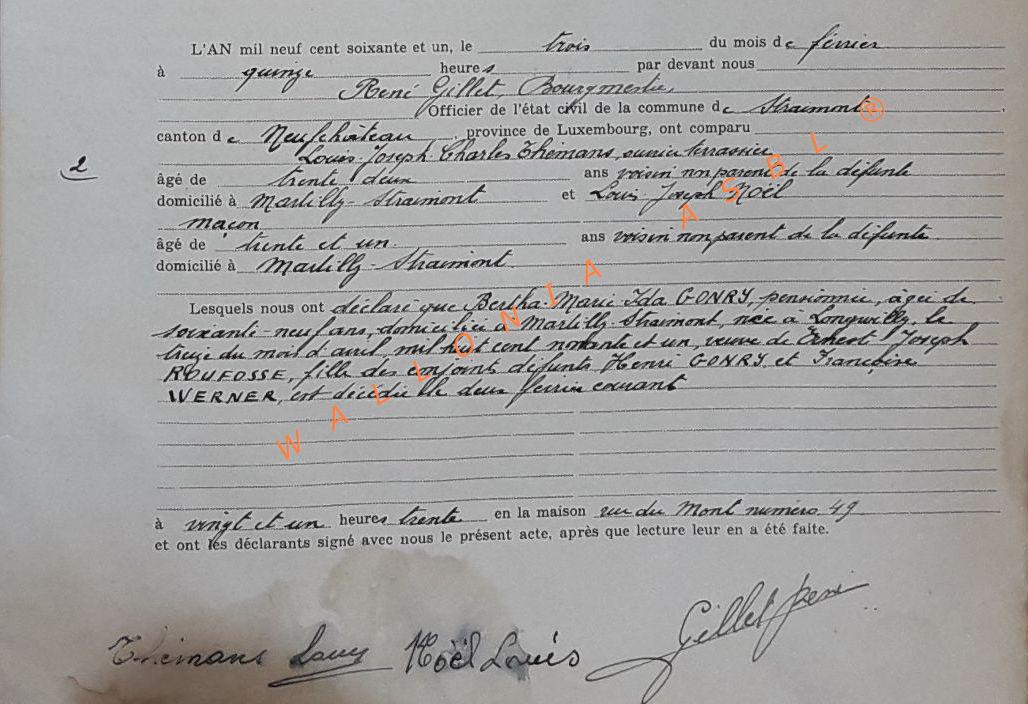 L'AN mil neuf cent soixante et un, le trois du mois de février
à quinze heures par devant nous
René Gillet, Bourgmestre,
Officier de l'état civil de la commune de Straimont
canton de Neufchâteau, province de Luxembourg, ont comparu
2
Louis-Joseph-Charles Thémans, ouvrier terrassier
âgé de trente deux ans voisin non parent de la défunte
domicilié à Martilly-Straimont et Louis Joseph Noël
maçon
âgé de trente et un ans voisin non parent de la défunte
domicilié à Martilly-Straimont
Lesquels nous ont déclaré que Bertha-Marie-Ida GONRY, pensionnée, âgée de
soixante-neuf ans, domiciliée à Martilly-Straimont, née à Longvilly, le
treize du mois d'avril, mil huit cent nonante et un, veuve de Ernest Joseph
ROUFOSSE, fille des conjoints défunts Henri GONRY et Françoise
WERNER, est décédée le deux février courant
à vingt et un heures trente en la maison rue du Mont numéro 49
et ont les déclarants signé avec nous le présent acte, après que lecture leur en a été faite.
Thémans Louis Noël Louis Gillet René
WALLONIA ASBL ®